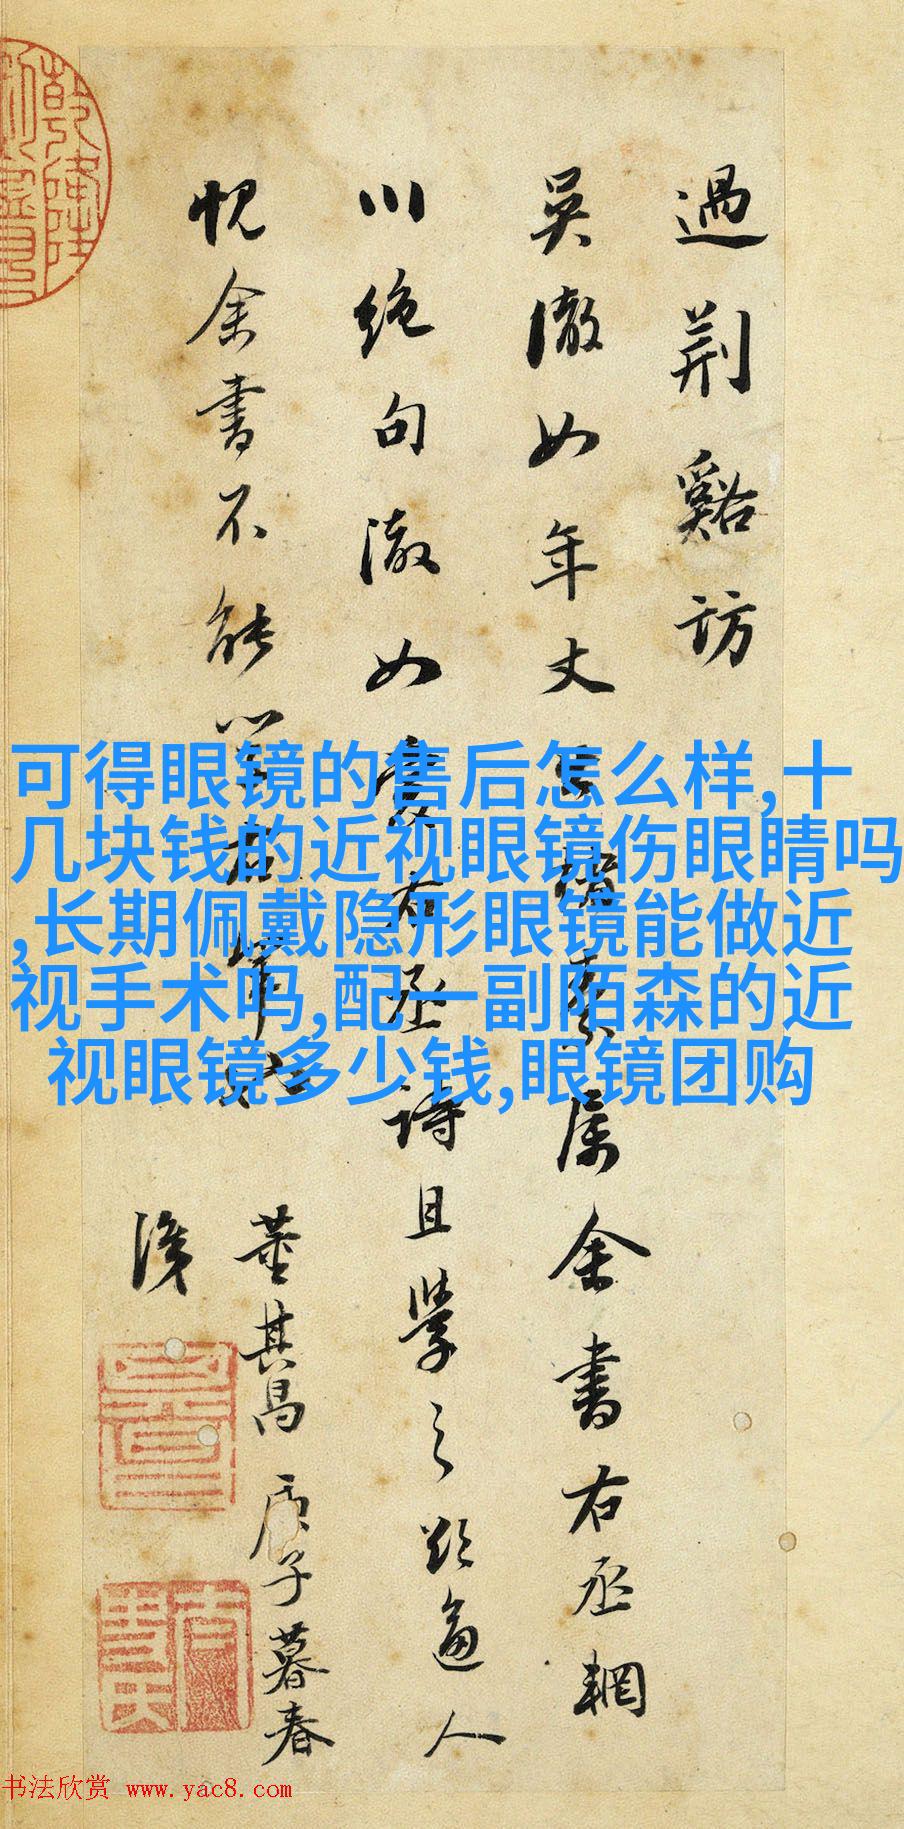 過荆谿訪
吴澈如年丈
余書右丞輞
川絶句澈如
右丞詩且學之欵逼人
愧余書不能
董其昌庚子暮春
識
可得眼镜的售后怎么样,十
几块钱的近视眼镜伤眼睛吗
,长期佩戴隐形眼镜能做近
视手术吗,配一副陌森的近
视眼镜多少钱,眼镜团购
书法欣赏 www.yac8.com